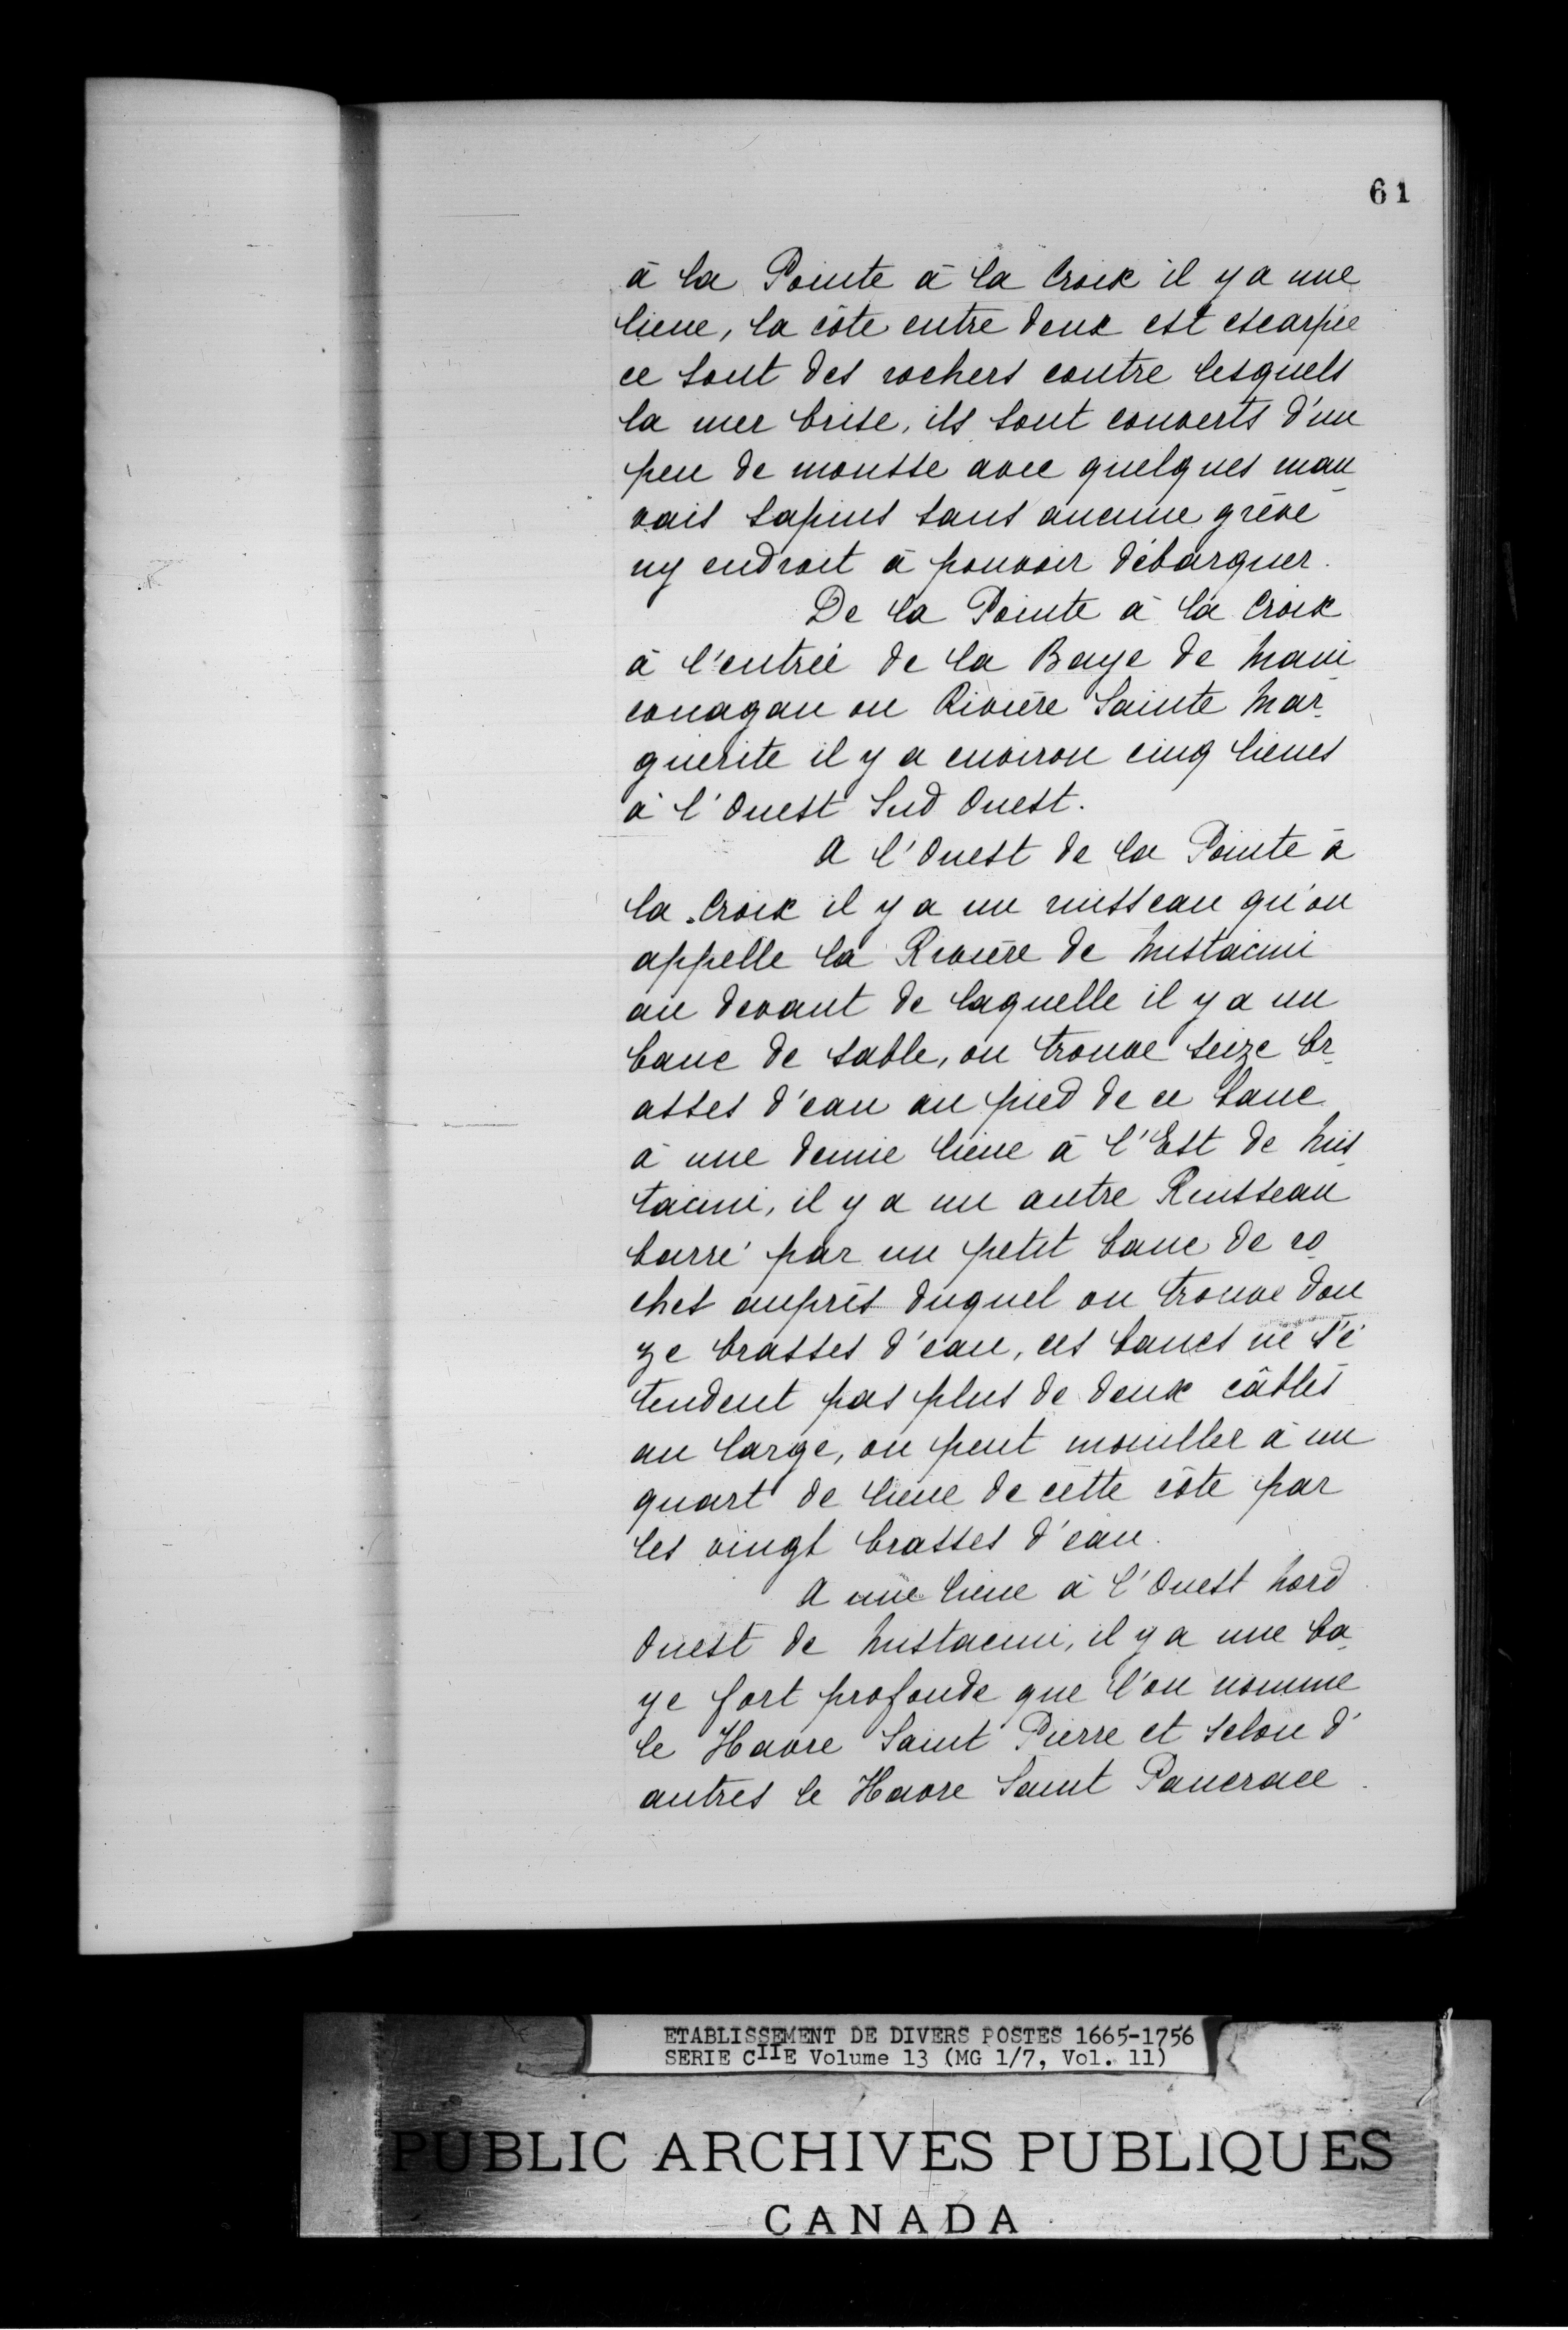 61
à la Pointe à la Croix il y a une
lieue, la côte entre deux est escarpée
ce sont des rochers contre lesquels
la mer brise, ils sont couverts d'un
peu de mousse avec quelques mau
vais sapins sans aucune grève
ny endroit à pouvoir débarquer.
De la Pointe à la Croix
à l'entrée de la Baye de Mani
conagan ou Rivière Sainte Mar
guerite il y a environ cinq lieues
à l'Ouest Sud Ouest.
A l'Ouest de la Pointe à
la Croix il y a un ruisseau qu'on
appelle la Rivière de Mistacini
au devant de laquelle il y a un
banc de sable, on trouve seize br
asses d'eau au pied de ce banc
à une demie lieue à l'Est de Mis
tacini, il y a un autre Ruisseau
barré par un petit banc de ro
ches auprès duquel on trouve dou
ze brasses d'eau, ces bancs ne s'é
tendent pas plus de deux câbles
au large, on peut mouiller à un
quart de lieue de cette côte par
les vingt brasses d'eau.
A une lieue à l'Ouest Nord
Ouest de Mistacini, il y a une ba
ye fort profonde que l'on nomme
le Havre Saint Pierre et selon d'
autres le Havre Saint Pancrace.
ETABLISSEMENT DE DIVERS POSTES 1665-1756
SERIE CIIE Volume 13 (MG 1/7, Vol. 11)
PUBLIC ARCHIVES PUBLIQUES
CANADA